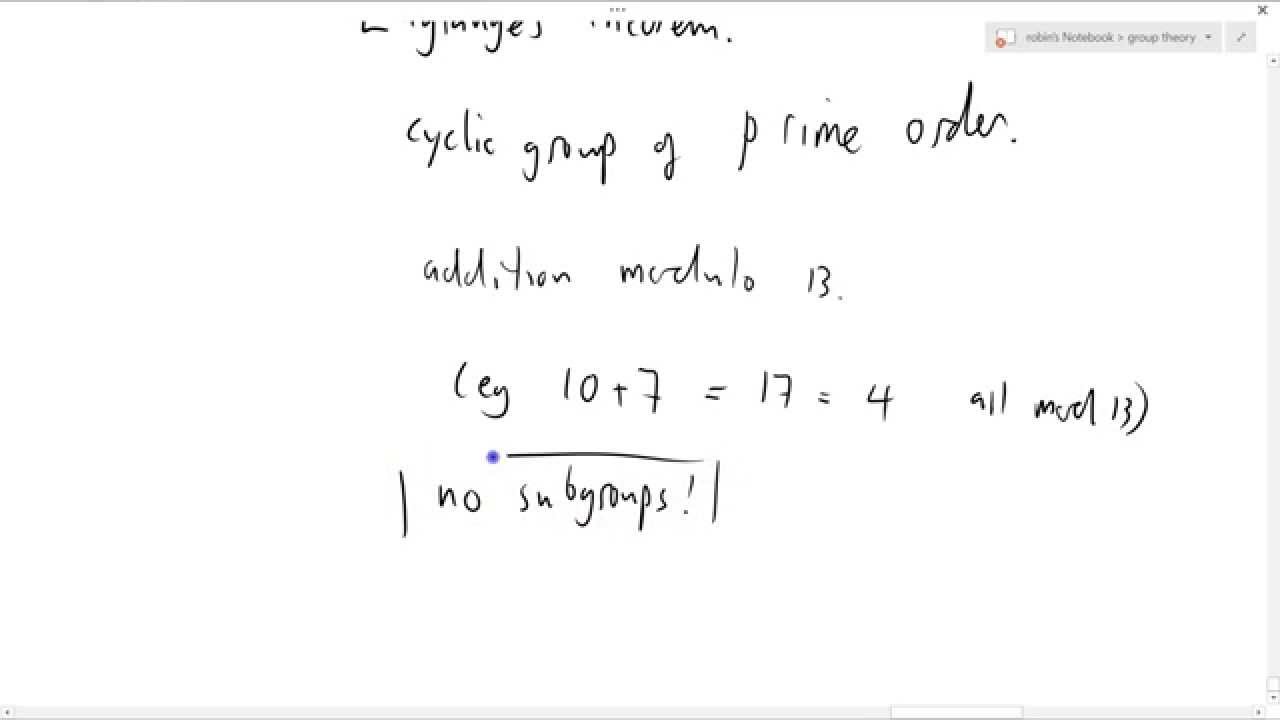 robin's Notebook > group theory
theorem.
cyclic group of prime order.
addition modulo 13.
(eg 10+7 = 17 = 4 all mod 13)
no subgroups!